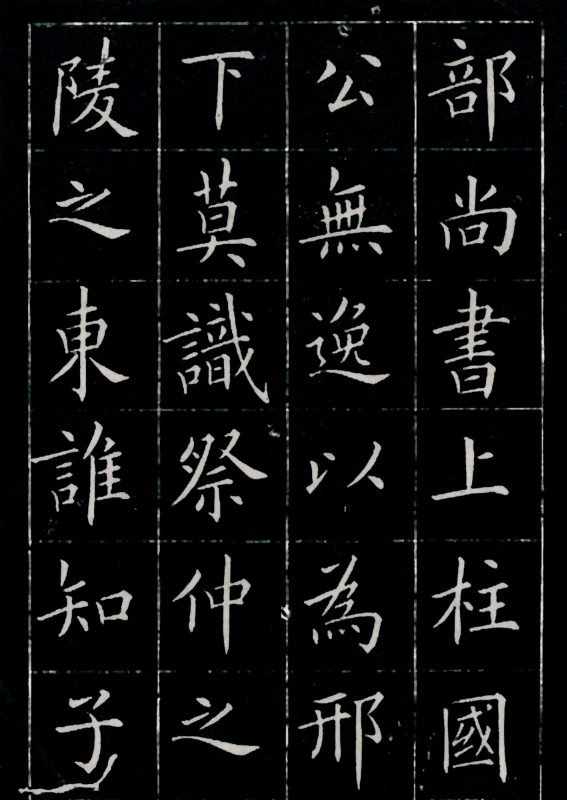 部尚書上柱國
公無逸以為邢
下莫識祭仲之
陵之東誰知子